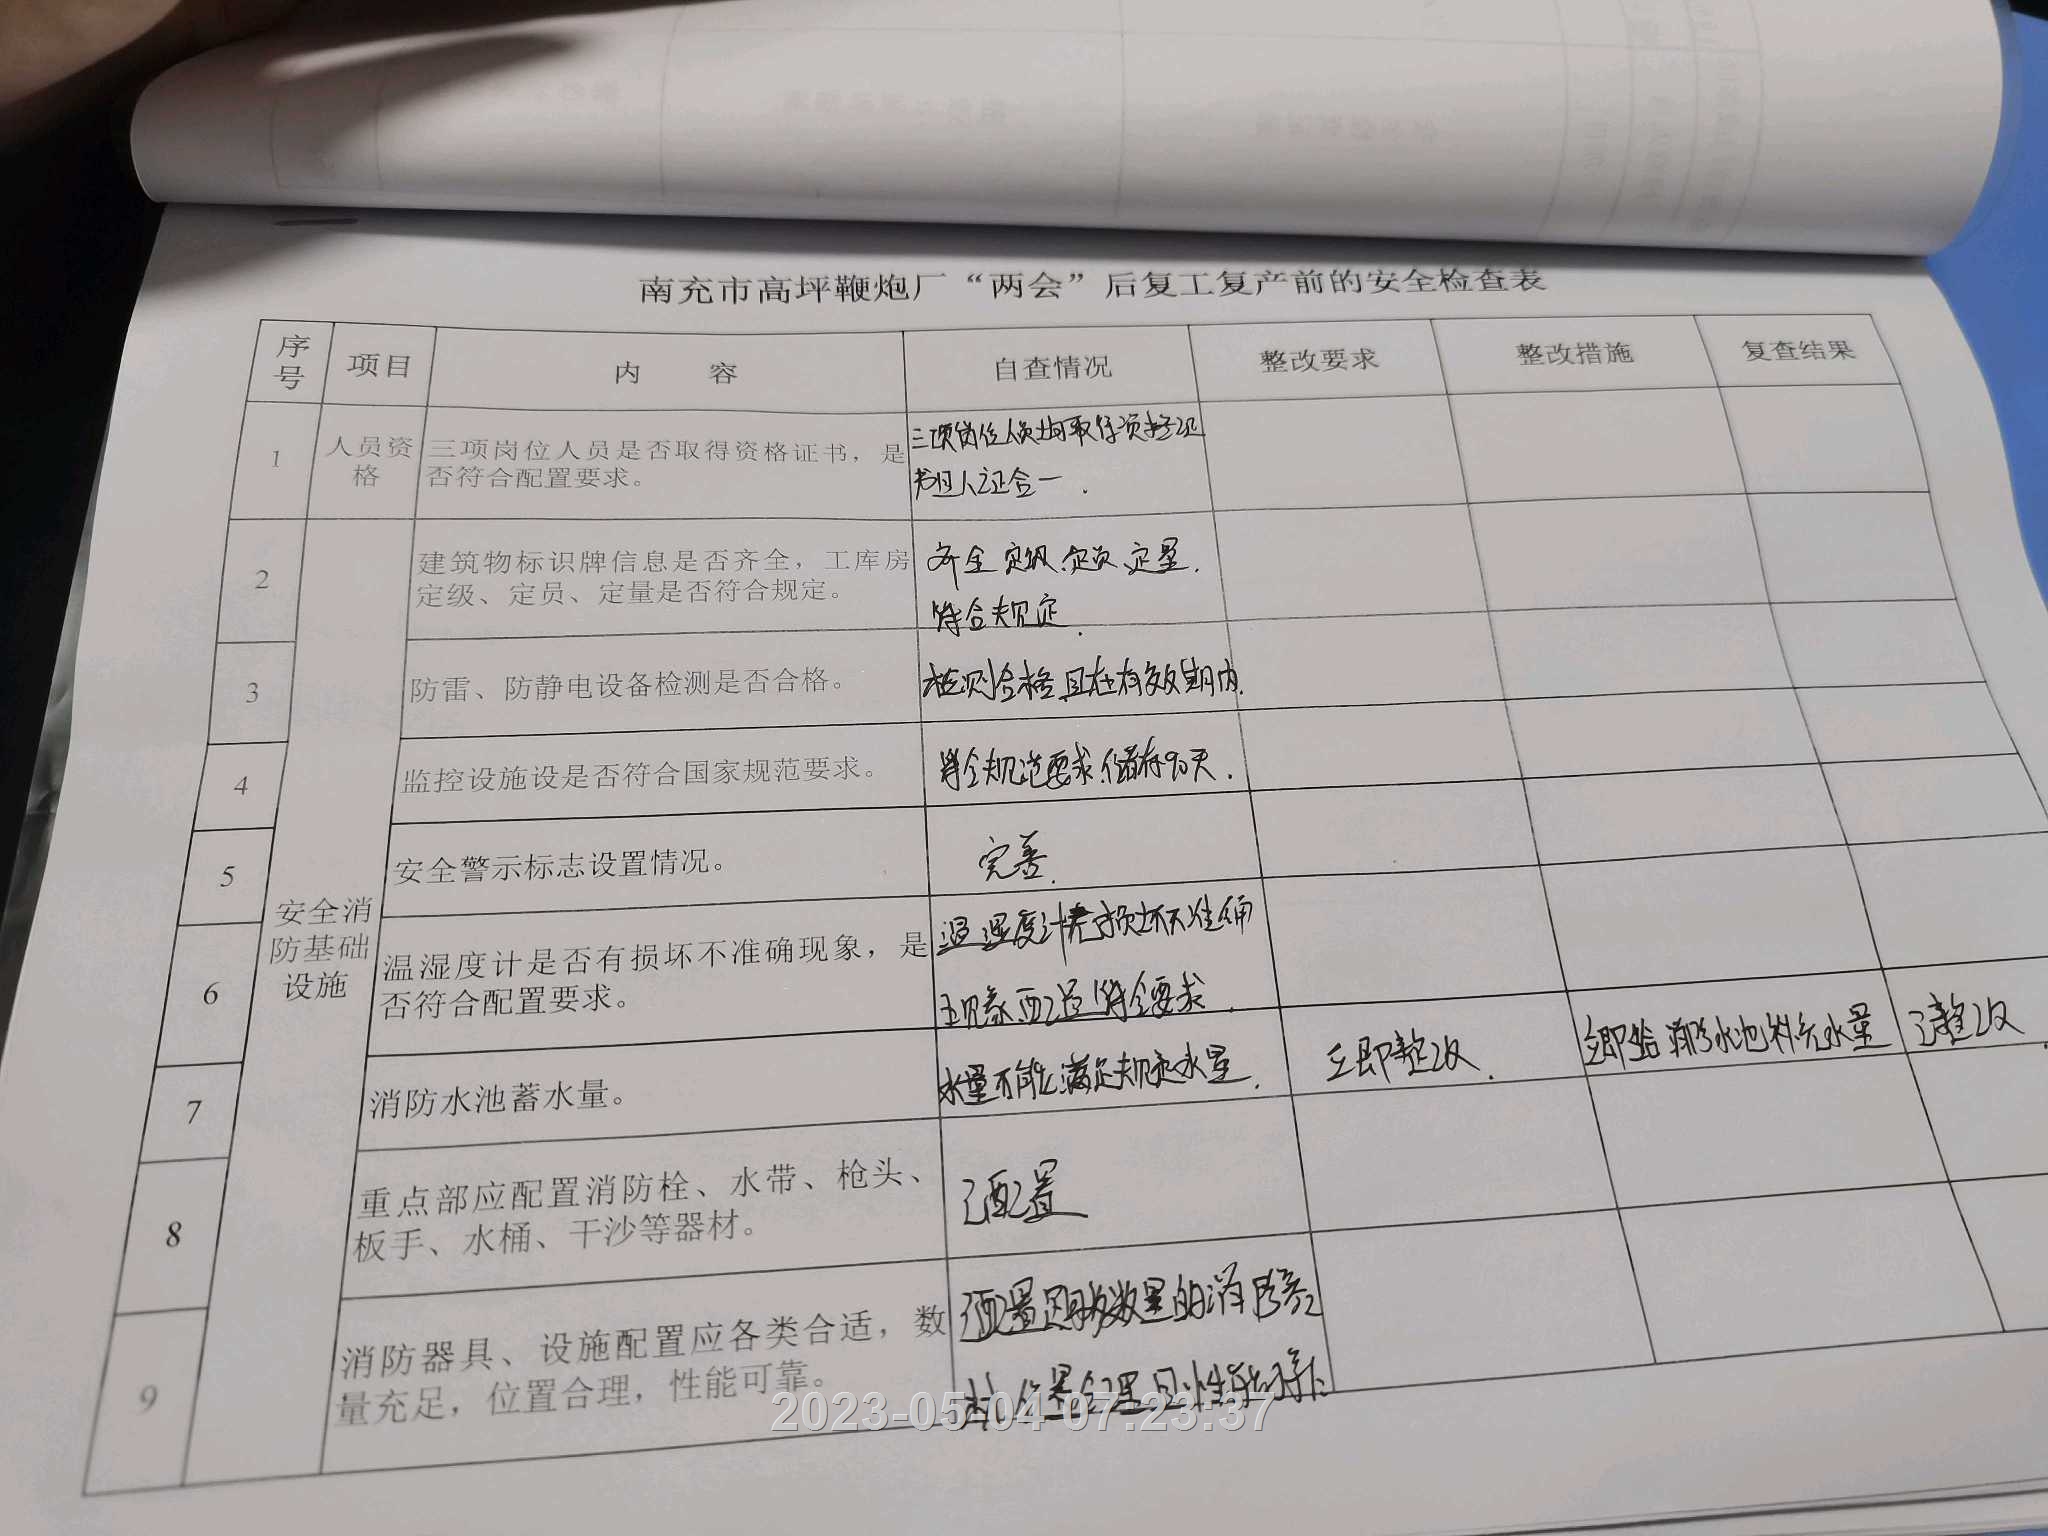 南充市高坪鞭炮厂“两会”后复工复产前的安全检查表
序号 项目 内 容 自查情况 整改要求 整改措施 复查结果
1 人员资格 三项岗位人员是否取得资格证书，是
否符合配置要求。
三项岗位人员均取得
书且人证合一.
安全消
防基础
设施
2 建筑物标识牌信息是否齐全，工库房
定级、定员、定量是否符合规定。
齐全 定级、定员、定量.
符合规定.
3 防雷、防静电设备检测是否合格。 检测合格且在有效期内.
4 监控设施设是否符合国家规范要求。 符合规范要求.储存90天.
5 安全警示标志设置情况。 完善.
6 温湿度计是否有损坏不准确现象，是
否符合配置要求。
温湿度计无损坏不准确
现象 配置符合要求.
7 消防水池蓄水量。 水量不能满足规定水量. 立即整改. 立即给消防水池补充水量 已整改.
8 重点部应配置消防栓、水带、枪头、
板手、水桶、干沙等器材。
已配置
9 消防器具、设施配置应各类合适，数
量充足，位置合理，性能可靠。
已配置足够数量的消防器
材,位置合理且性能可靠
2023-05-04 07:23:37